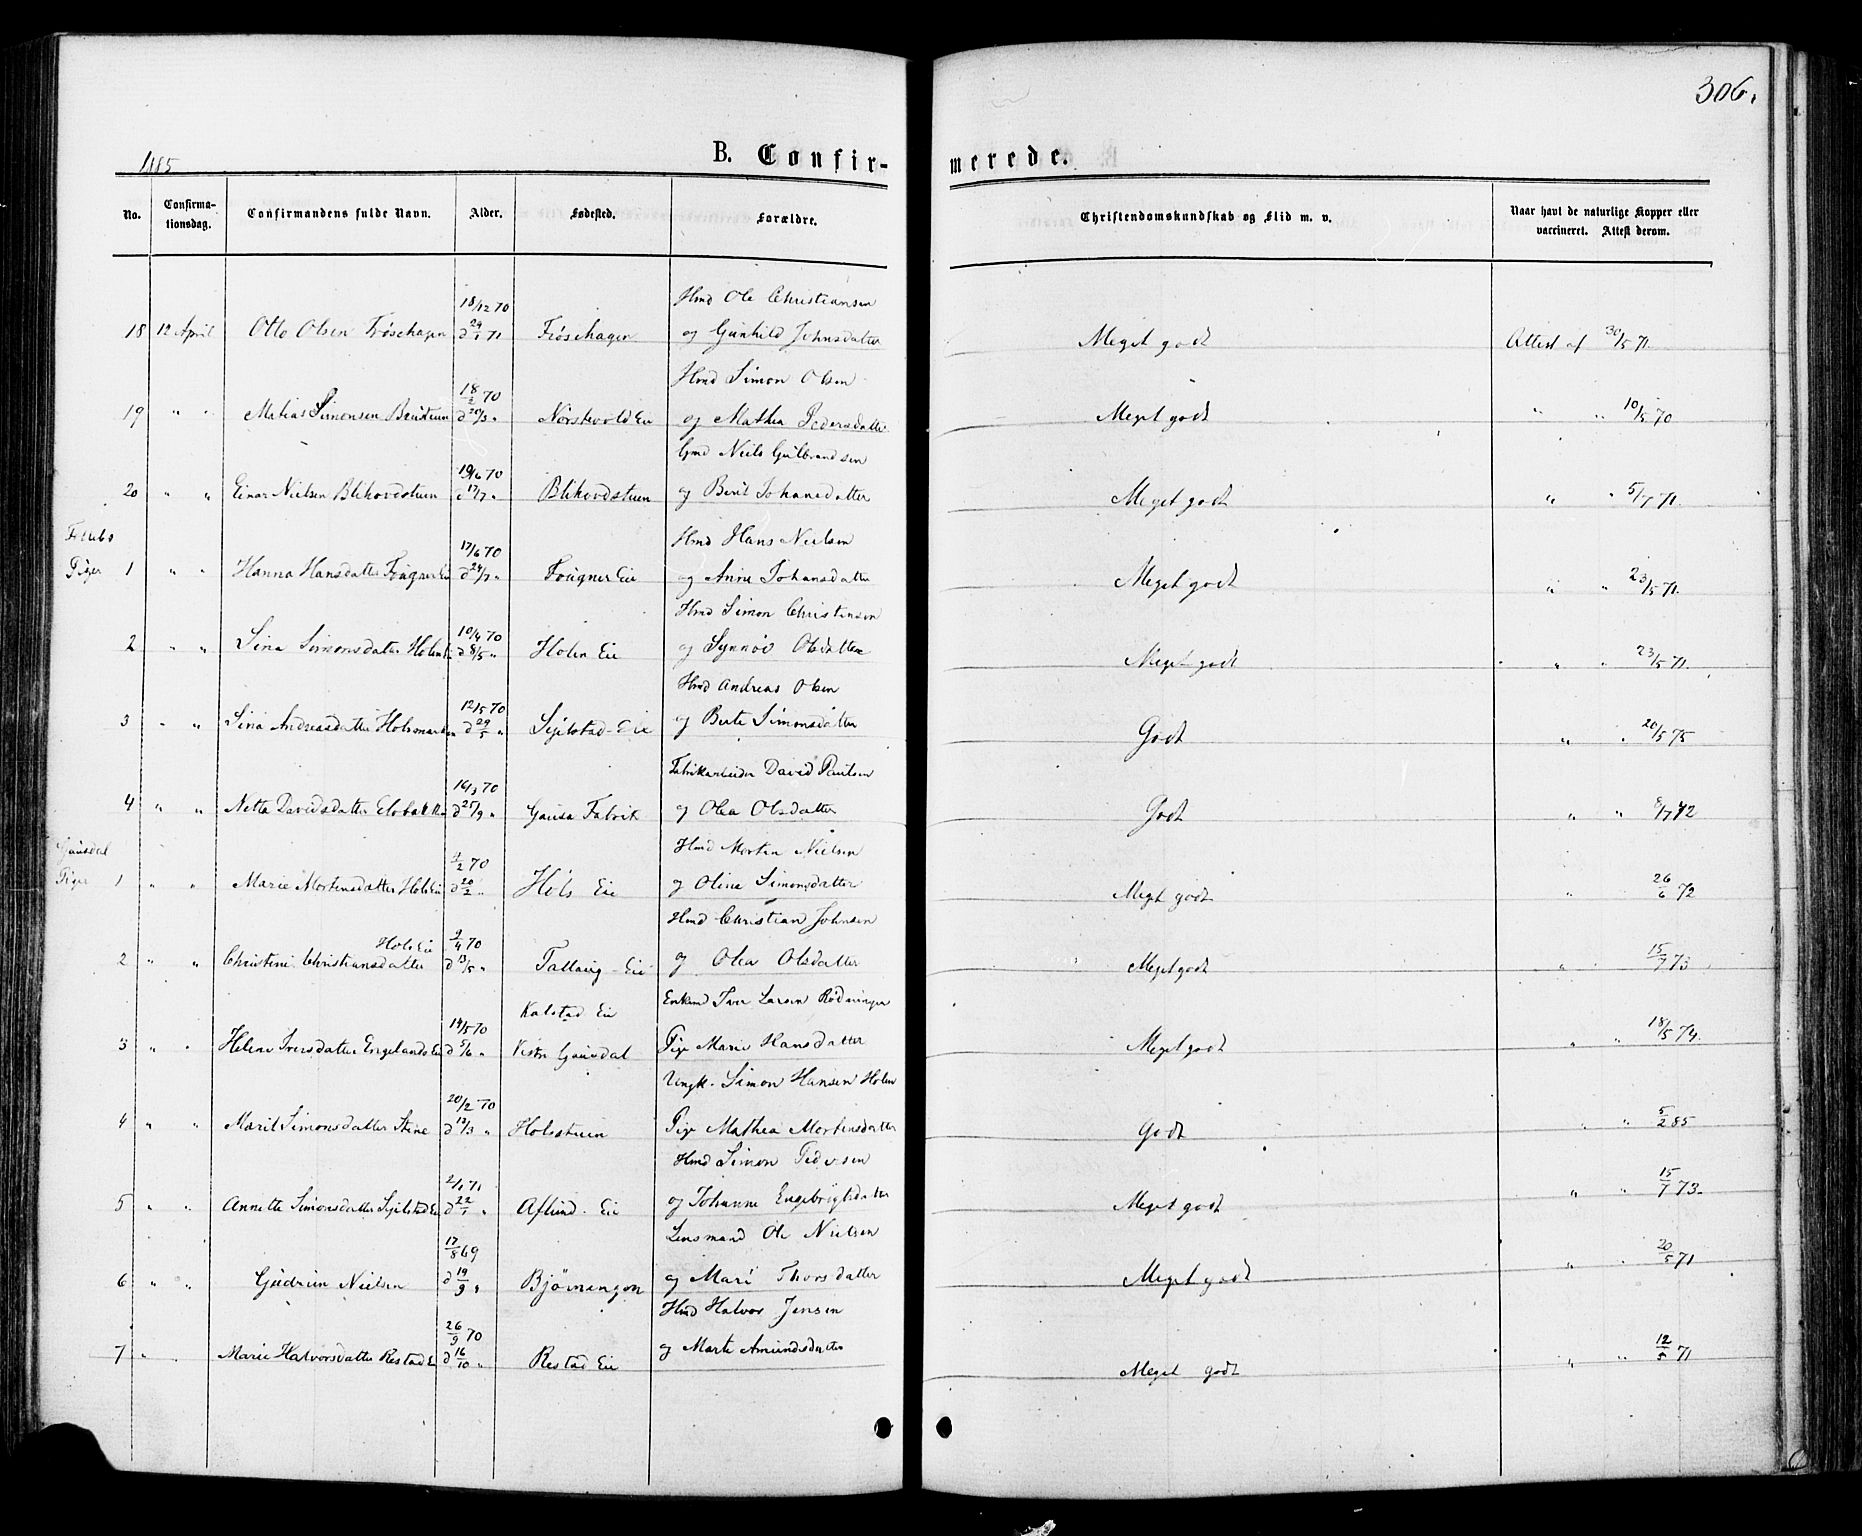 306.
1885
B. Confir-
merede.
No.
Confirma-
tionsdag.
Confirmandens fulde Navn.
Alder.
Fødested.
Forældre.
Christendomskundskab og Flid m. v.
Naar havt de naturlige Kopper eller
vaccineret. Attest derom.
18/12 70 Hmd Ole Christiansen
18 12 April Otto Olsen Frøsehagen d 29/1 71 Frøsehagen og Gunhild Johnsdatter Meget godt Attest af 30/5 71.
18/2 70 Hmd Simon Olsen
19 " " Matias Simonsen d 20/3 " Nørstevold Eie og Mathea Pedersdatter Meget godt " " 10/5 70
19/6 70 Gmd Niels Gulbrandsen
20 " " Einar Nielsen Blihovdstuen d 17/7 " Blihovdstuen og Berit Johansdatter Meget godt " " 5/7 71.
17/6 70 Hmd Hans Nielsen
Piger 1 " " Hanna Hansdatter Fougner Eie d 24/7 " Fougner Eie og Anne Johansdatter Meget godt " " 23/5 71.
10/4 70 Hmd Simon Christensen
2 " " Sina Simonsdatter d 8/5 " Holen Eie og Synnøv Olsdatter Meget godt " " 23/5 71.
12/5 70 Hmd Andreas Olsen
3 " " Sina Andreasdatter Holsmarken d 29/5 " Sejelstad - Eie og Berte Simonsdatter Godt " " 20/5 75
16/3 70 Fabrikarbeider David Paulsen
4 " " Netta Davidsdatter d 25/9 " Gausa Fabrik og Olea Olsdatter Godt " " 8/7 72
Gausdal 2/2 70 Hmd Morten Nielsen
Piger 1 " " Marie Mortensdatter Hols Eie d 20/2 " Hols Eie og Oline Simonsdatter Meget godt " 26/6 72
Hols Eie 9/4 70 Hmd Christian Johnsen
2 " " Christine Christiansdatter d 13/5 " Tallaug - Eie og Olea Olsdatter Meget godt " 15/7 73
14/5 70 Kalstad Eie Enkem Iver Larsen Rødninger
3 " " Helene Iversdatter Engelands Eie d 5/6 " Vestre Gausdal Pige Marie Hansdatter Meget godt " " 18/5 74.
20/2 70 Ungk. Simon Hansen Holen
4 " " Marit Simonsdatter Steine d 13/3 " Holsstuen Pige Mathea Mortensdatter Godt " " 5/2 85
2/1 71 Hmd Simon Pedersen
5 " " Annette Simonsdatter Sejelstad Eie d 22/1 " Aflund - Eie og Johanne Engebrigtsdatter Meget godt " " 15/7 73.
17/8 69 Lensmand Ole Nielsen
6 " " Gudrun Nielsen d 19/9 " og Mari Thorsdatter Meget godt " " 20/5 71
26/9 70 Hmd Halvor Jensen
7 " " Marie Halvorsdatter Restad Eie d 16/10 " Restad Eie og Marte Amundsdatter Meget godt " " 12/5 71